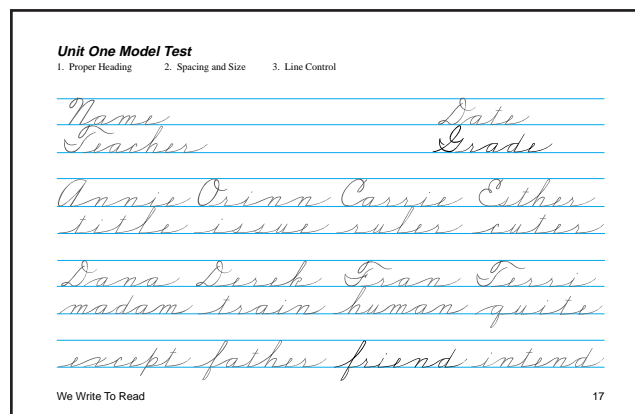 Unit One Model Test
1. Proper Heading 2. Spacing and Size 3. Line Control
Name Date
Teacher Grade
Annie Orinn Carrie Esther
title issue ruler cuter
Dana Derek Fran Terri
madam train human quite
except father friend intend
We Write To Read 17